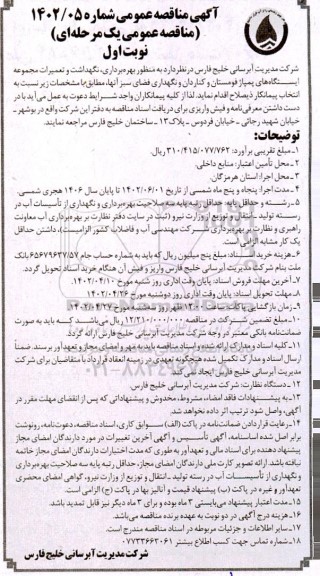 آگهی مناقصه عمومی شماره ۱۴۰۲/۰۵
(مناقصه عمومی یک مرحله‌ای)
نوبت اول
شرکت مدیریت آبرسانی خلیج فارس در نظر دارد به منظور بهره‌برداری، نگهداشت و تعمیرات مجموعه
ایستگاه‌های پمپاژ قومستان و کناردان و نگهداری فضای سبز آنها، مطابق با مشخصات زیر نسبت به
انتخاب پیمانکار ذیصلاح اقدام نماید. لذا از کلیه پیمانکاران واجد شرایط دعوت به عمل می‌آید با در
دست داشتن معرفی‌نامه و فیش واریزی برای دریافت اسناد مناقصه به دفتر این شرکت واقع در بوشهر -
خیابان شهید رجائی - خیابان فردوس - پلاک ۱۳ - ساختمان خلیج فارس مراجعه نمایند.
توضیحات:
۱- مبلغ تقریبی برآورد: ۳۱۰/۴۱۵/۰۷۷/۷۶۲ ریال.
۲- محل تأمین اعتبار: منابع داخلی.
۳- محل اجرا: استان هرمزگان.
۴- مدت اجرا: پنجاه و پنج ماه شمسی از تاریخ ۱۴۰۲/۰۶/۰۱ تا پایان سال ۱۴۰۶ هجری شمسی.
۵- رشته و حداقل پایه: حداقل رتبه پایه سه صلاحیت بهره‌برداری و نگهداری از تأسیسات آب در
رسته تولید - انتقال و توزیع از وزارت نیرو (ثبت در سایت دفتر نظارت بر بهره‌برداری آب معاونت
راهبری و نظارت بر بهره‌برداری شرکت مهندسی آب و فاضلاب کشور الزامیست)، داشتن حداقل
یک کار مشابه الزامی است.
۶- هزینه خرید اسناد: مبلغ پنج میلیون ریال که باید به شماره حساب جام ۶۵۶۷۹۶۳۷/۵۷ بانک
ملت بنام شرکت مدیریت آبرسانی خلیج فارس واریز و فیش آن هنگام خرید اسناد تحویل گردد.
۷- آخرین مهلت فروش اسناد: پایان وقت اداری روز شنبه مورخ ۱۴۰۲/۰۴/۱۰.
۸- مهلت تحویل اسناد: پایان وقت اداری روز دوشنبه مورخ ۱۴۰۲/۰۴/۲۶.
۹- زمان بازگشایی پاکات: ساعت ۱۲:۰۰ ظهر روز سه‌شنبه مورخ ۱۴۰۲/۰۴/۲۷.
۱۰- مبلغ تضمین شرکت در مناقصه ۱۲/۲۱۰/۰۰۰/۰۰۰ ریال می‌باشد که باید به صورت
ضمانت‌نامه بانکی معتبر در وجه شرکت مدیریت آبرسانی خلیج فارس ارائه گردد.
۱۱- کلیه اسناد و مدارک ارائه شده و اسناد مناقصه باید به مهر و امضای مجاز و تعهدآور برسند. ضمناً
ارسال اسناد و مدارک تکمیل شده هیچگونه تعهدی در زمینه انعقاد قرارداد با متقاضیان برای شرکت
مدیریت آبرسانی خلیج فارس ایجاد نمی‌کند.
۱۲- دستگاه نظارت: شرکت مدیریت آبرسانی خلیج فارس.
۱۳- به پیشنهادات فاقد امضاء، مشروط، مخدوش و پیشنهاداتی که پس از انقضای مهلت مقرر در
آگهی، واصل شود ترتیب اثر داده نخواهد شد.
۱۴- رعایت قرار دادن ضمانت‌نامه در پاکت (الف) سوابق کاری، اسناد مناقصه، دعوت‌نامه، رونوشت
برابر اصل شده اساسنامه، آگهی تأسیس و آگهی آخرین تغییرات در مورد دارندگان امضای مجاز
پیشنهاد دهنده برای اسناد مالی و تعهدآور به طوری که مدت اختیارات دارندگان امضای مجاز خاتمه
نیافته باشد، ارائه تصویر کارت ملی دارندگان امضای مجاز، حداقل رتبه پایه سه صلاحیت بهره‌برداری
و نگهداری از تأسیسات آب در رسته تولید - انتقال و توزیع از وزارت نیرو، گواهی امضای محضری
تعهدآور و غیره در پاکت (ب) پیشنهاد قیمت و آنالیز بها در پاکت (ج) الزامی است.
۱۵- مدت اعتبار پیشنهاد می‌بایستی ۳ ماه بوده و برای ۳ ماه دیگر نیز قابل تمدید باشد.
۱۶- هزینه درج آگهی در دو نوبت به عهده برنده مناقصه می‌باشد.
۱۷- سایر اطلاعات و جزئیات مربوطه در اسناد مناقصه مندرج است.
۱۸- شماره تماس جهت کسب اطلاع بیشتر ۰۷۷۳۳۶۶۳۰۶۱
شرکت مدیریت آبرسانی خلیج فارس